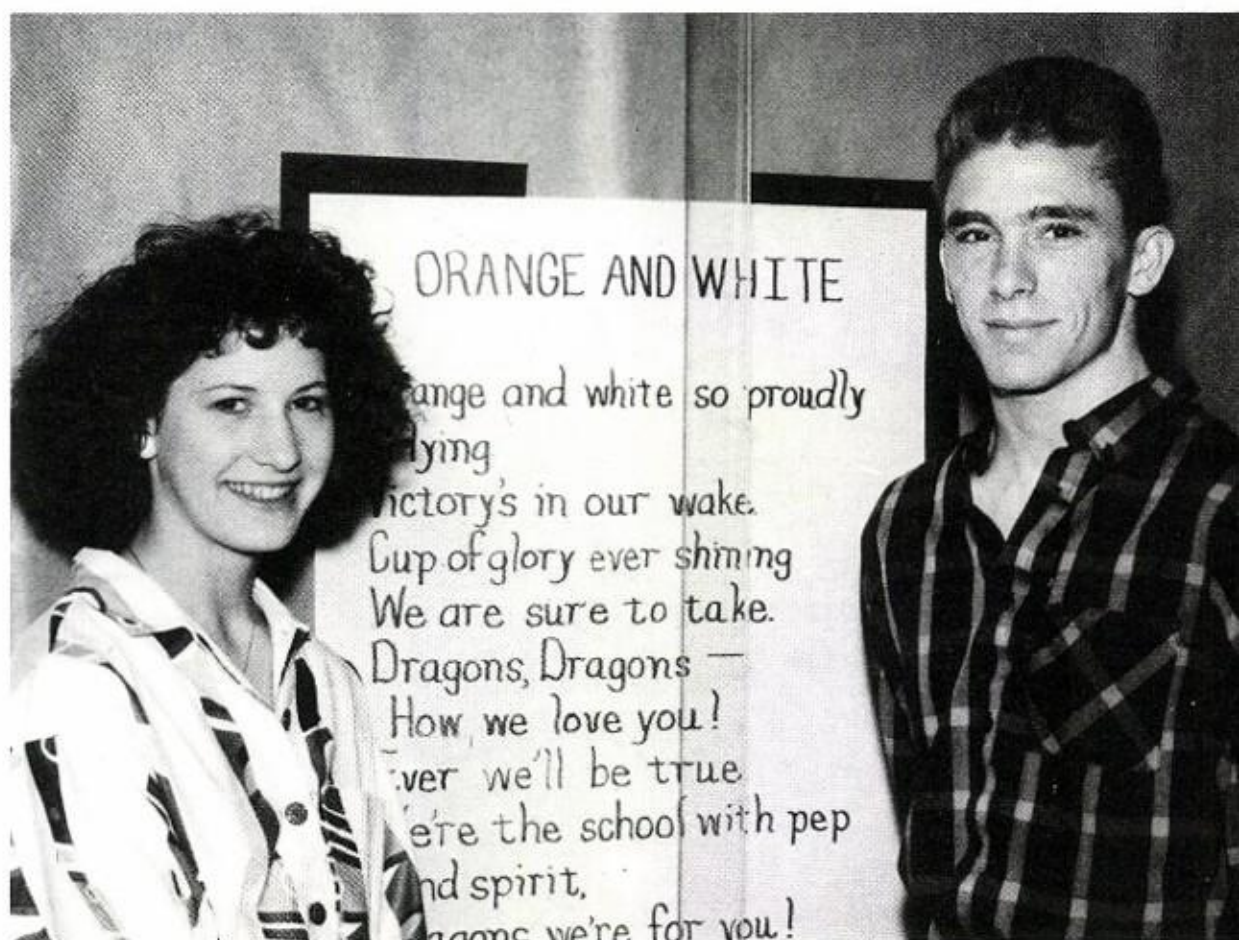 ORANGE AND WHITE
ange and white so proudly
lying
ictory's in our wake.
Cup of glory ever shining
We are sure to take.
Dragons, Dragons —
How we love you!
ver we'll be true
e're the school with pep
nd spirit,
agons we're for you!